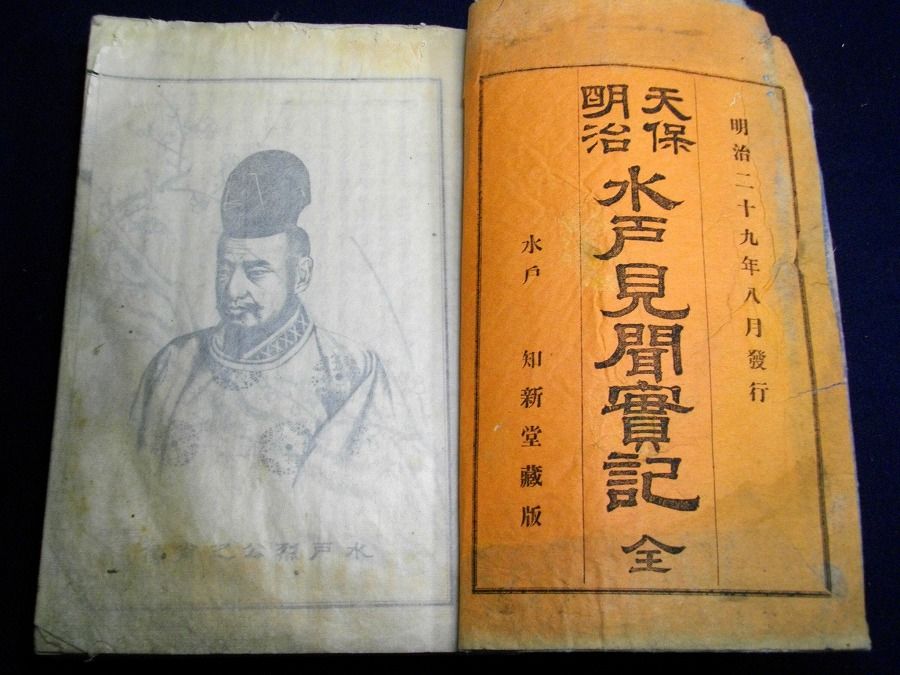 明治二十九年八月發行
天保
明治
水戶見聞實記 全
水戶 知新堂藏版
水戶烈公之